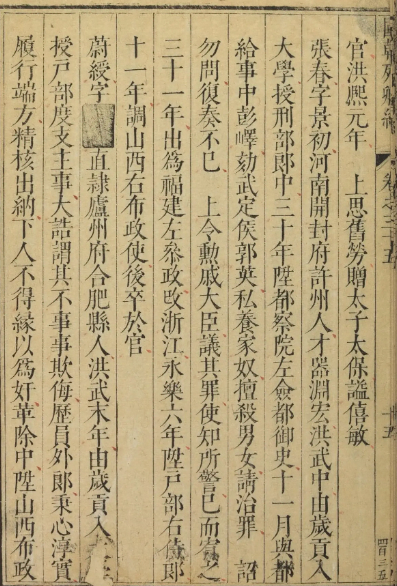 官洪熙元年　上思舊勞贈太子太保謚僖敏
張春字景初河南開封府許州人才器淵宏洪武中由歲貢入
大學授刑部郎中三十年陞都察院左僉都御史十一月與都
給事中彭嶧劾武定侯郭英私養家奴擅殺男女請治罪　詔
勿問復奏不已　上令勲戚大臣議其罪使知所警已而宥之
三十一年出爲福建左叅政改浙江永樂六年陞戶部右侍郎
十一年調山西右布政使後卒於官
蔚綬字　直隷廬州府合肥縣人洪武末年由歲貢入
授戶部度支主事大誥謂其不事事欺侮歷員外郎秉心淳實
履行端方精核出納下人不得緣以爲奸革除中陞山西布政